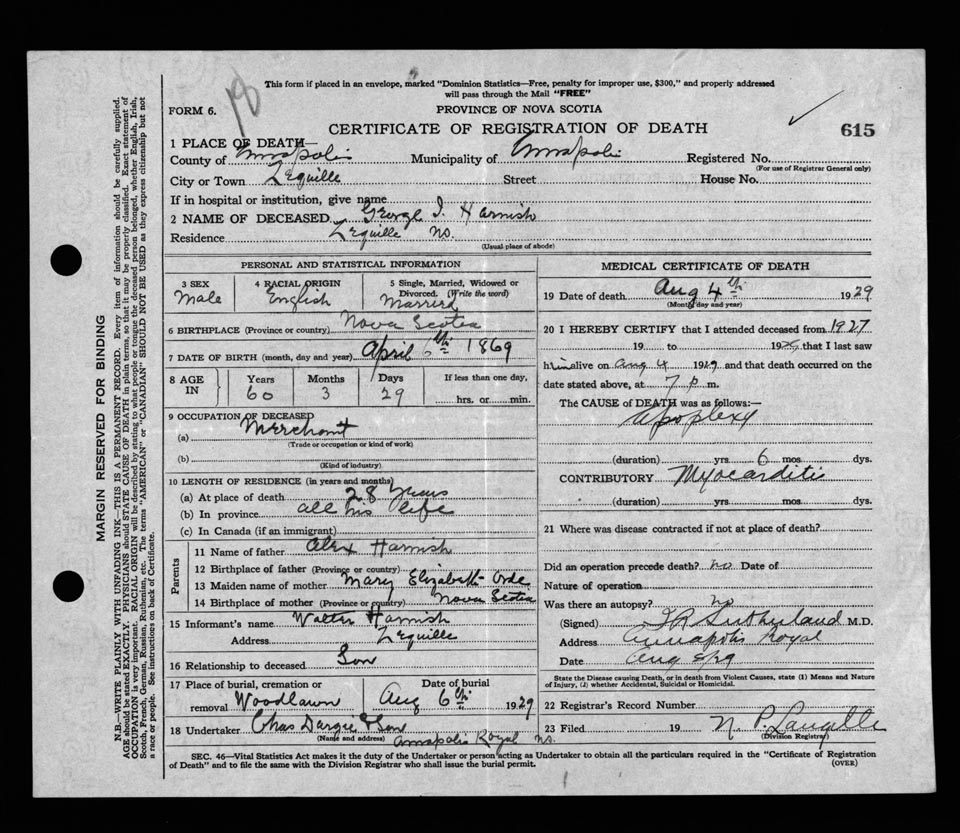 18
This form if placed in an envelope, marked "Dominion Statistics—Free, penalty for improper use, $300," and properly addressed
will pass through the Mail "FREE"
FORM 6.
PROVINCE OF NOVA SCOTIA
CERTIFICATE OF REGISTRATION OF DEATH
615
1 PLACE OF DEATH—
County of Annapolis Municipality of Annapolis Registered No.
(For use of Registrar General only)
City or Town Lequille Street House No.
If in hospital or institution, give name
2 NAME OF DECEASED George I. Harnish
Residence Lequille NS.
(Usual place of abode)
PERSONAL AND STATISTICAL INFORMATION
3 SEX Male
4 RACIAL ORIGIN English
5 Single, Married, Widowed or Divorced. (Write the word) Married
6 BIRTHPLACE (Province or country) Nova Scotia
7 DATE OF BIRTH (month, day and year) April 6th 1869
8 AGE IN Years 60 Months 3 Days 29 If less than one day, hrs. or min.
9 OCCUPATION OF DECEASED
(a) Merchant
(Trade or occupation or kind of work)
(b)
(Kind of industry)
10 LENGTH OF RESIDENCE (in years and months)
(a) At place of death 28 years
(b) In province all his life
(c) In Canada (if an immigrant)
Parents
11 Name of father Alex Harnish
12 Birthplace of father (Province or country)
13 Maiden name of mother Mary Elizabeth Orde
14 Birthplace of mother (Province or country) Nova Scotia
15 Informant's name Walter Harnish
Address Lequille
16 Relationship to deceased Son
17 Place of burial, cremation or removal Woodlawn Date of burial Aug 6th 1929
18 Undertaker Chas Dargie & Son
(Name and address) Annapolis Royal NS.
MEDICAL CERTIFICATE OF DEATH
19 Date of death Aug 4th 1929
(Month, day and year)
20 I HEREBY CERTIFY that I attended deceased from 1927
19 to 1929 that I last saw
him alive on Aug 4 1929 and that death occurred on the
date stated above, at 7 p m.
The CAUSE of DEATH was as follows:—
Apoplexy
(duration) yrs 6 mos dys.
CONTRIBUTORY Myocarditis
(duration) yrs. mos. dys.
21 Where was disease contracted if not at place of death?
Did an operation precede death? no Date of
Nature of operation
Was there an autopsy? no
(Signed) Sutherland M.D.
Address Annapolis Royal
Date Aug 5/29
State the Disease causing Death, or in death from Violent Causes, state (1) Means and Nature
of Injury, (2) whether Accidental, Suicidal or Homicidal.
22 Registrar's Record Number
23 Filed 19 N. P. Langille
(Division Registrar)
SEC. 46—Vital Statistics Act makes it the duty of the Undertaker or person acting as Undertaker to obtain all the particulars required in the "Certificate of Registration
of Death" and to file the same with the Division Registrar who shall issue the burial permit.
(OVER)
MARGIN RESERVED FOR BINDING
N.B.—WRITE PLAINLY WITH UNFADING INK—THIS IS A PERMANENT RECORD. Every item of information should be carefully supplied.
AGE should be stated EXACTLY. PHYSICIANS should STATE CAUSE OF DEATH in plain terms, so that it may be properly classified. Exact statement of
OCCUPATION is very important. RACIAL ORIGIN will be described by stating to what people or tongue the deceased person belonged, whether English, Irish,
Scotch, French, German, Russian, Ruthenian, etc. The terms "AMERICAN" or "CANADIAN" SHOULD NOT BE USED as they express citizenship but not
a race or people. See instructions on back of Certificate.